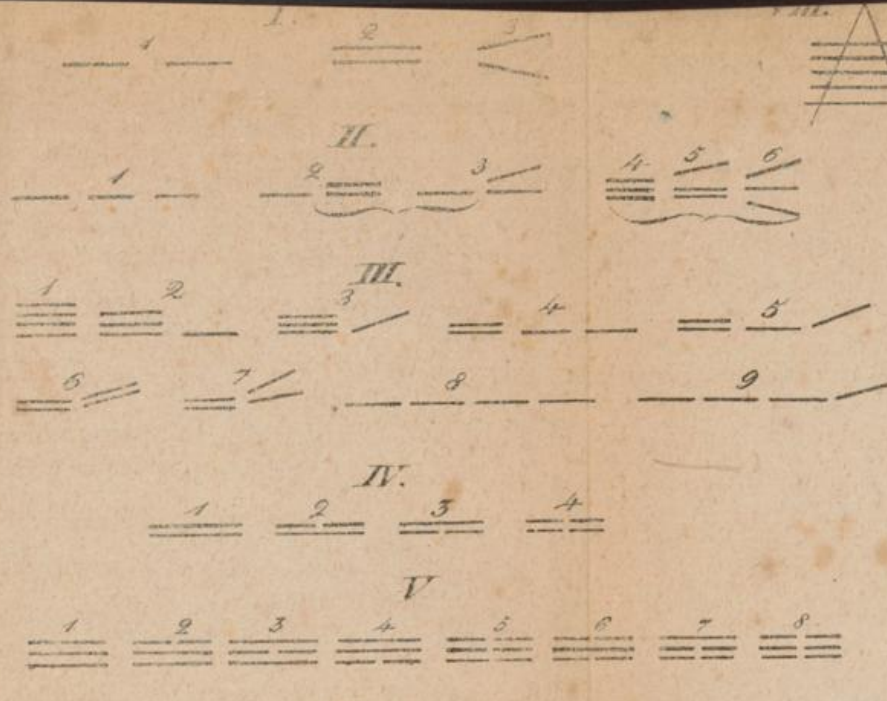 I.
1 2 3
II.
1 2 3 4 5 6
III.
1 2 3 4 5
6 7 8 9
IV.
1 2 3 4
V
1 2 3 4 5 6 7 8